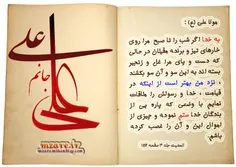 مولا علی (ع) :
به خدا اگر شب را تا صبح مرا روی
خارهای تیز و برنده مغیلان در حالی
که دست و پای مرا غل و زنجیر
بسته اند به این سو و آن سو بکشند
، نزد من بهتر است از اینکه در
قیامت ، خدا و رسولش را ملاقات
نمایم با وضعی که پاره یی از
بندگان خدا ستم نموده و چیزی از
اموال این و آن را غصب کرده
باشم.
علی
علی
جانم
mzare.ir